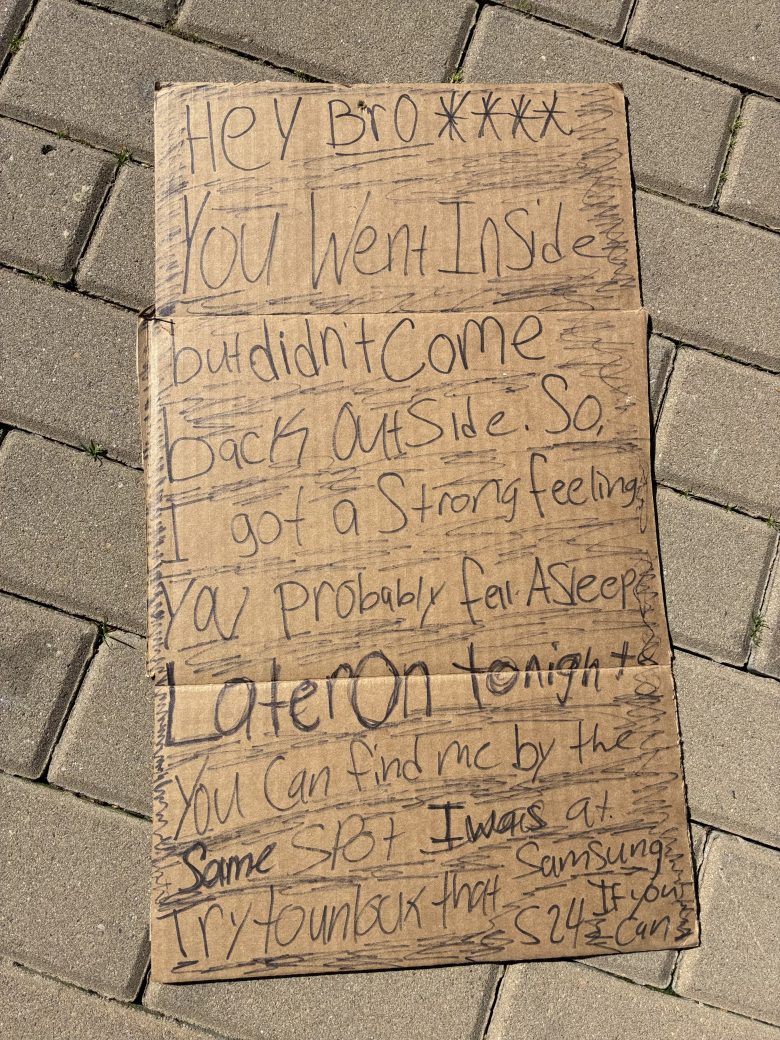 Hey Bro ****
You Went Inside
but didn't Come
back OutSide. So,
I got a Strong feeling
You Probably fell ASleep
Later On tonight
You Can find me by the
Same SPOt I was at.
Try to unlock that Samsung
S24 If you
Can